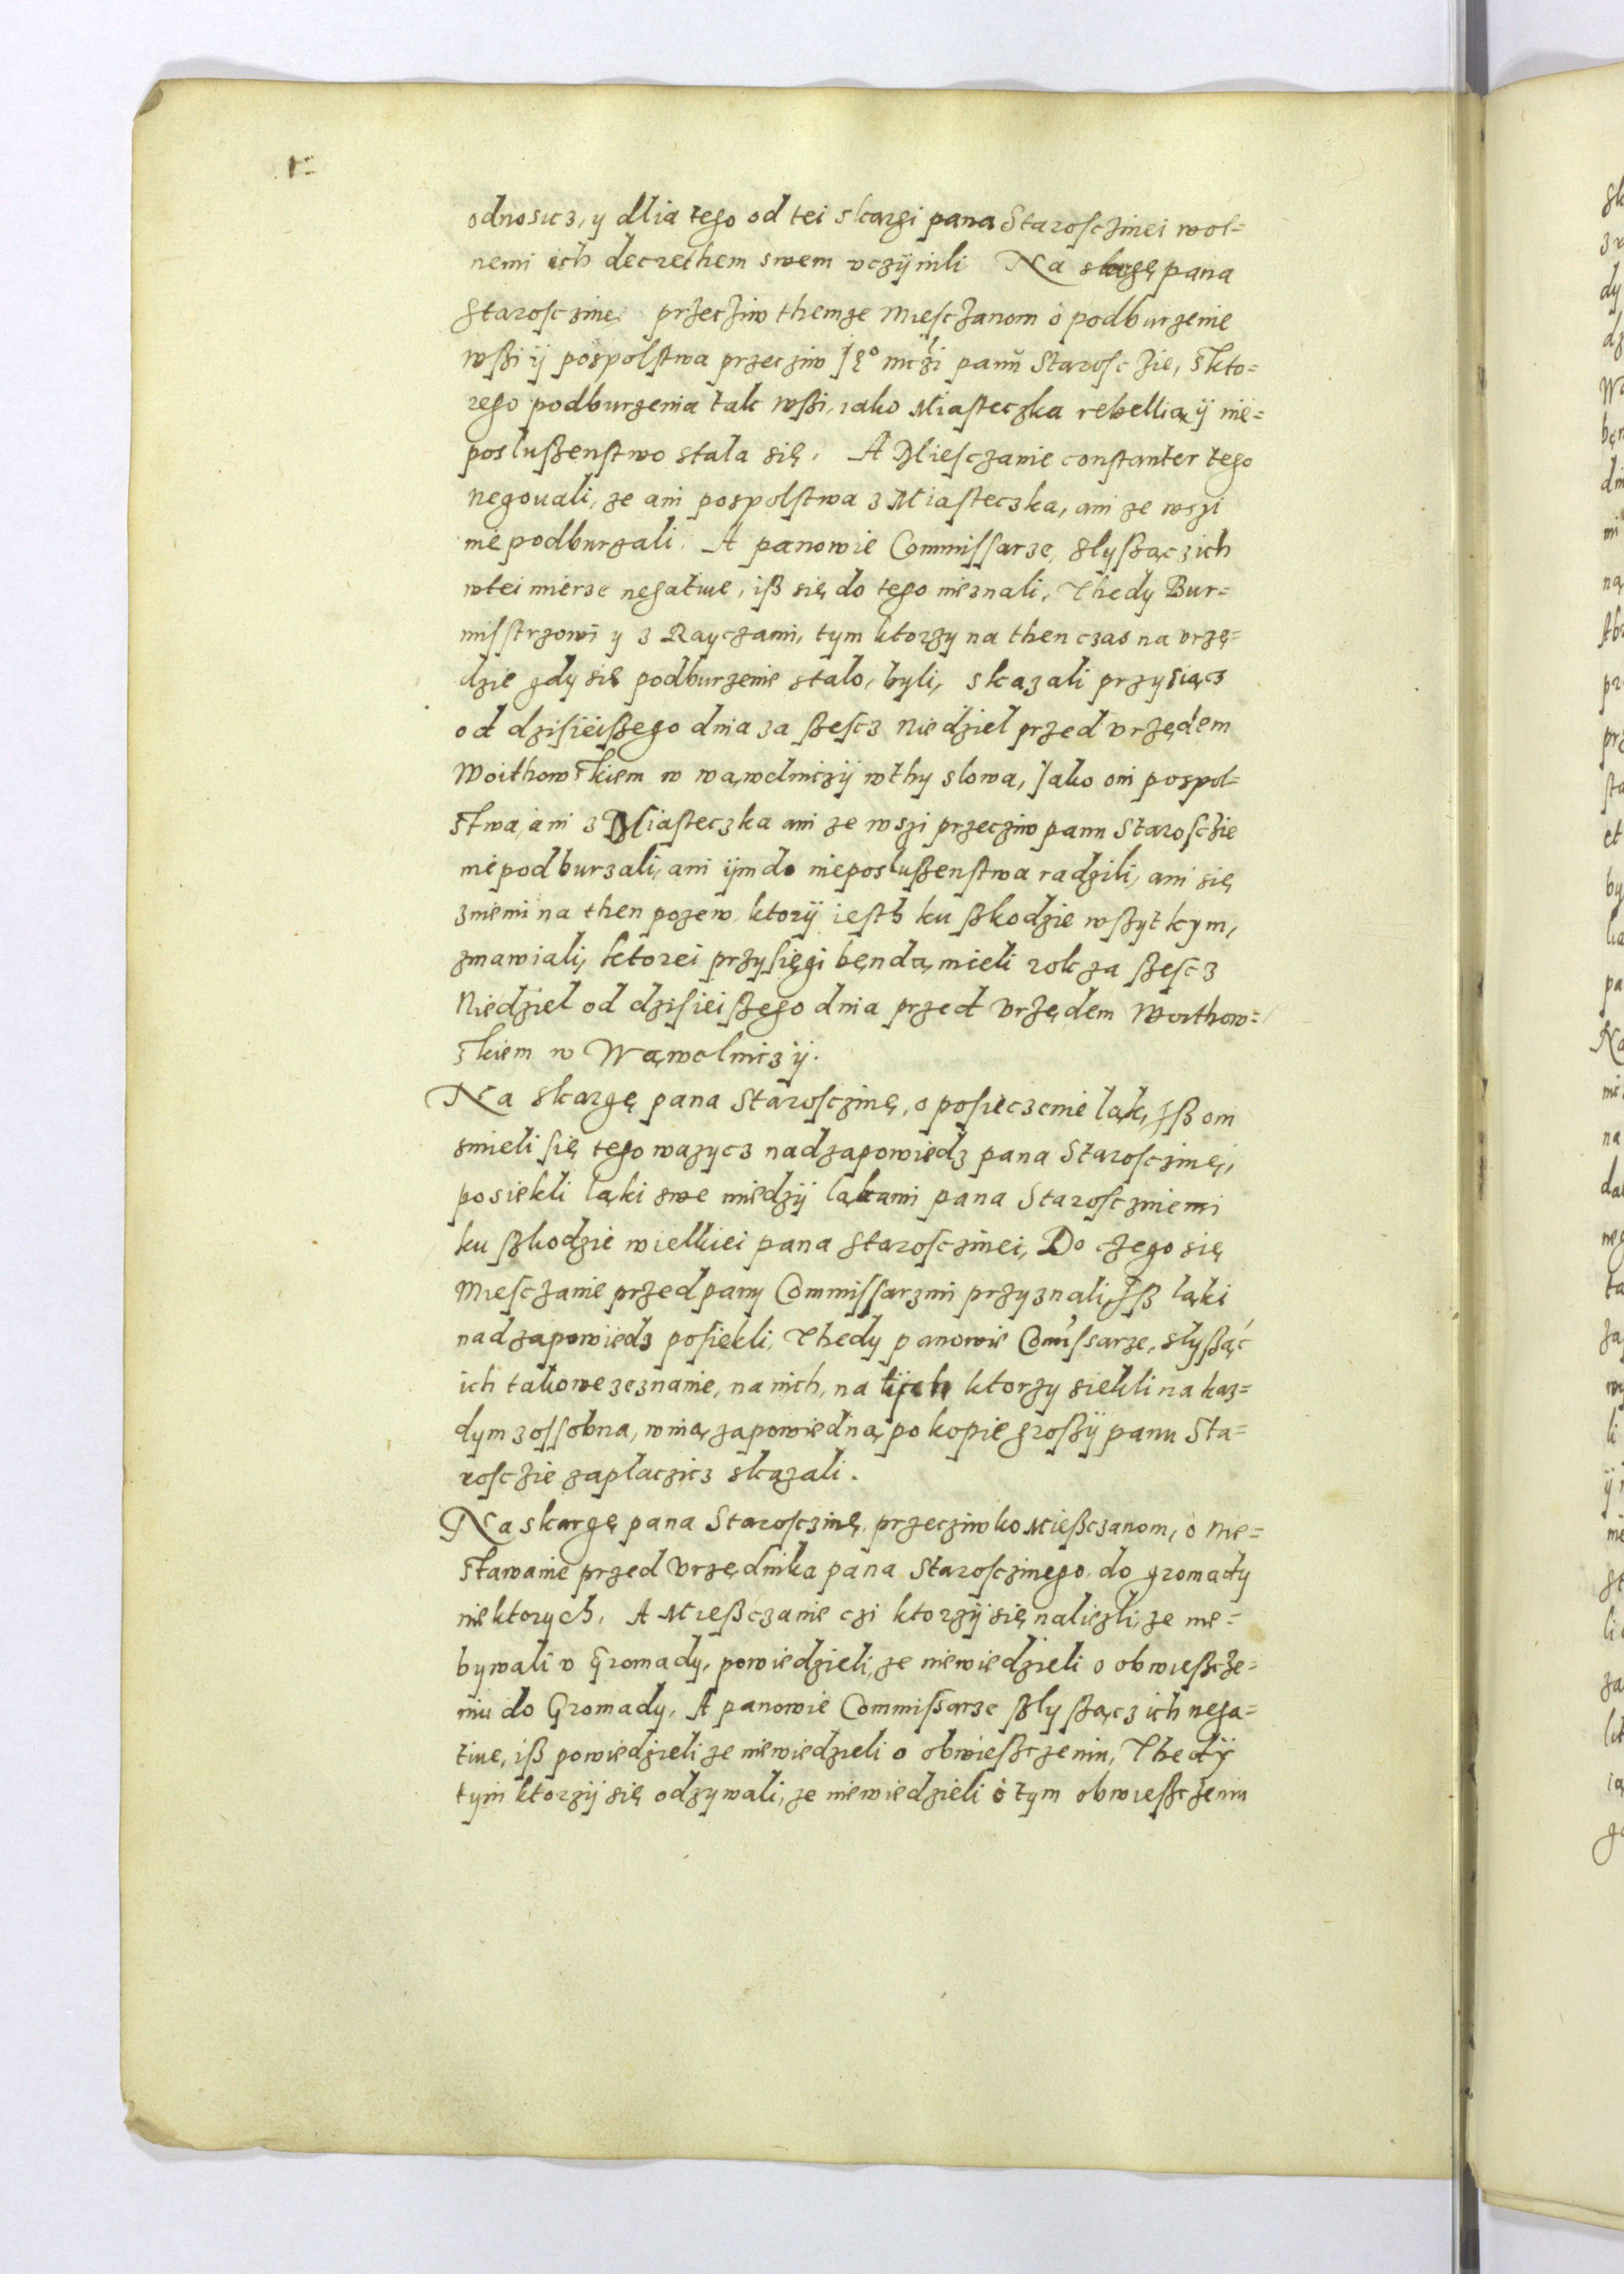 odnosicz, y dlia tego od tei skargi pana Starosczinei wol=
nemi ich decrethem swem vczÿnili Na skargę pana
Starosczinę przecziw themze Miesczanom o podburzenie
wßi ÿ pospolstwa przecziw panu Starosczie, skto=
rego podburzenia tak wßi, iako Miasteczka rebellia ÿ nie=
poslußenstwo stala się. A Miesczanie constanter tego
negouali, ze ani pospolstwa z Miasteczka, ani ze wszi
nie podburzali. A panowie Commissarze, slyßącz ich
wtei mierze negatiue, iß się do tego nieznali, Thedy Bur=
misstrzowi y z Rayczami, tym ktorzy na then czas na vrzę=
dzie gdy się podburzenie stalo, byli, skazali przysiącz
od dzisieißego dnia za ßescz niedziel przed vrzędem
Woithowskiem w wąwolniczÿ wthy slowa, Jako oni pospol=
stwa, ani z Miasteczka ani ze wszi przecziw panu Starosczie
niepodburzali, ani ÿm do nieposlußenstwa radzili, ani się
zniemi na then pozew, ktorÿ iesth ku ßkodzie wßytkym,
zmawiali, ktorei przysięgi bęndą mieli rok za ßescz
Niedziel od dzisieißego dnia przed vrzędem Woithow=
skiem w Wąwolniczÿ.
Na skargę pana Starosczinę, o posieczenie ląk, Iß oni
smieli się tego wazycz nad zapowiedz pana Starosczinę,
posiekli ląki swe miedzÿ ląkami pana Starosczinemi
ku ßkodzie wielkiei pana Starosczinei, Do czego się
Miesczanie przed pany Commissarzmi przyznali, Iß ląki
nad zapowiedz posiekli, Thedy panowie Comissarze, slyßąc
ich takowe zeznanie, na nich, na tÿch ktorzy siekli na kaz=
dym zossobna, winą zapowiedną po kopie großÿ panu Sta=
rosczie zaplaczicz skazali.
Na skargę pana Starosczinę przecziwko Mießczanom, o nie=
stawanie przed vrzędnika pana Starosczinego do gromady
niektorych, A Mießczanie czi ktorzÿ się naliezli, ze nie=
bywali v Gromady, powiedzieli, ze niewiedzieli o obwießcze=
niu do Gromady, A panowie Commissarze ßlyßącz ich nega=
tiue, iß powiedzieli ze niewiedzieli o obwießczeniu, Thedÿ
tym ktorzÿ się odzywali, ze niewiedzieli o tym obwießczeniu